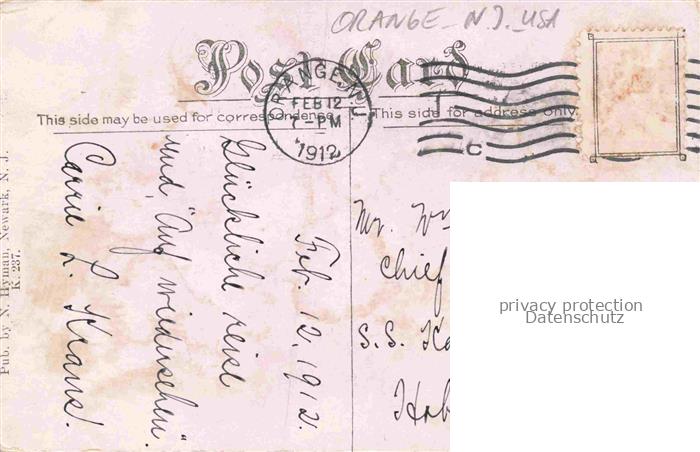 ORANGE - N.J. - USA
Post Card
ORANGE, N.J.
FEB 12
7-PM
1912
C
This side may be used for correspondence.
This side for address only.
Feb. 12, 1912.
Glückliche reise
und "Auf wiedersehen".
Carrie L. Kraus!
Mr. Wm
Chief
S.S.
Hob
Pub. by N. Hyman, Newark, N. J.
K. 287.
privacy protection
Datenschutz